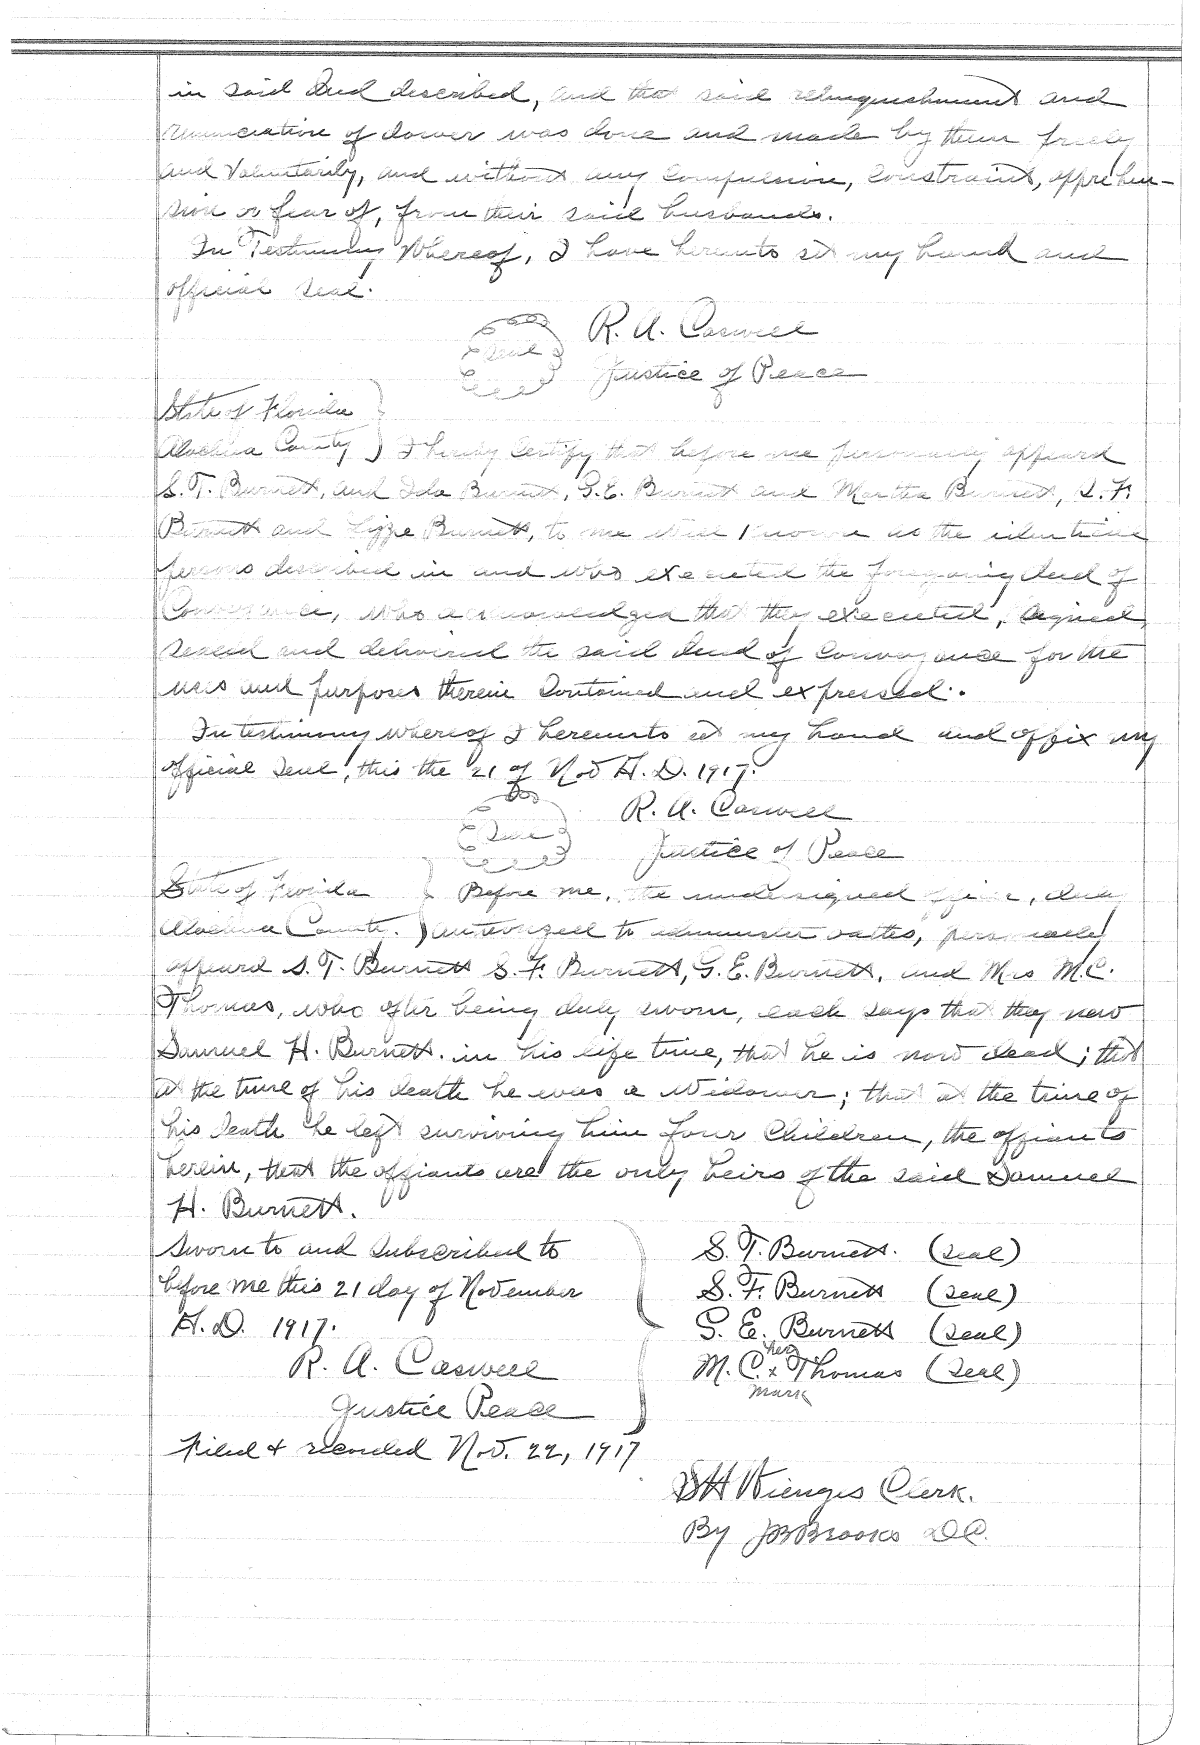 in said deed described, and that said relinquishment and
renunciation of dower was done and made by them freely
and Voluntarily, and without any Compulsion, Constraint, apprehen-
sion or fear of, from their said husbands.
In Testimony Whereof, I have hereunto set my hand and
official seal.
(Seal) R. A. Caswell
Justice of Peace
State of Florida
Alachua County } I hereby Certify that before me personally appeard
S. T. Burnett, and Ida Burnett, G. E. Burnett and Martha Burnett, S. F.
Burnett and Lizzie Burnett, to me well known as the identical
persons described in and who executed the foregoing deed of
Conveyance, who acknowledged that they executed, signed,
sealed and delivered the said deed of conveyance for the
uses and purposes therein Contained and expressed.
In testimony whereof I hereunto set my hand and affix my
official seal, this the 21 of Nov A. D. 1917.
(Seal) R. A. Caswell
Justice of Peace
State of Florida } Before me, the undersigned officer, duly
Alachua County. } authorized to administer oaths, personally
appeard S. T. Burnett S. F. Burnett, G. E. Burnett, and Mrs M. C.
Thomas, who after being duly sworn, each says that they new
Samuel H. Burnett. in his life time, that he is now dead; that
at the time of his death he was a Widower; that at the time of
his death he left surviving him four Children, the affiants
herein, that the affiants are the only heirs of the said Samuel
H. Burnett.
Sworn to and subscribed to S. T. Burnett. (seal)
before me this 21 day of November S. F. Burnett (seal)
A. D. 1917. G. E. Burnett (seal)
R. A. Caswell M. C. her x mark Thomas (seal)
Justice Peace
Filed & recorded Nov. 22, 1917
S H Wienges Clerk.
By J B Brooks D C.